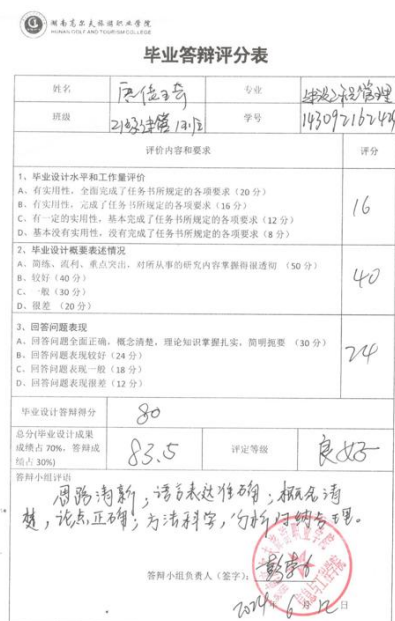 湖南高尔夫旅游职业学院
HUNAN GOLF AND TOURISM COLLEGE
毕业答辩评分表
姓名 专业 建设工程管理
班级 学号
评价内容和要求 评分
1、毕业设计水平和工作量评价
A、有实用性,全面完成了任务书所规定的各项要求(20 分)
B、有实用性,完成了任务书所规定的各项要求(16 分)
C、有一定的实用性,基本完成了任务书所规定的各项要求(12 分)
D、基本没有实用性,没有完成了任务书所规定的各项要求(8 分)
16
2、毕业设计概要表述情况
A、简练、流利、重点突出,对所从事的研究内容掌握得很透彻 (50 分)
B、较好(40 分)
C、一般(30 分)
D、很差 (20 分)
40
3、回答问题表现
A、回答问题全面正确,概念清楚,理论知识掌握扎实,简明扼要 (30 分)
B、回答问题表现较好(24 分)
C、回答问题表现一般(18 分)
D、回答问题表现很差(12 分)
24
毕业设计答辩得分 80
总分(毕业设计成果
成绩占 70%,答辩成
绩占 30%)
83.5 评定等级 良好
答辩小组评语
思路清新,语言表达准确,概念清
楚,论点正确;方法科学,分析归纳合理。
答辩小组负责人(签字):
2024年 6 月 12 日